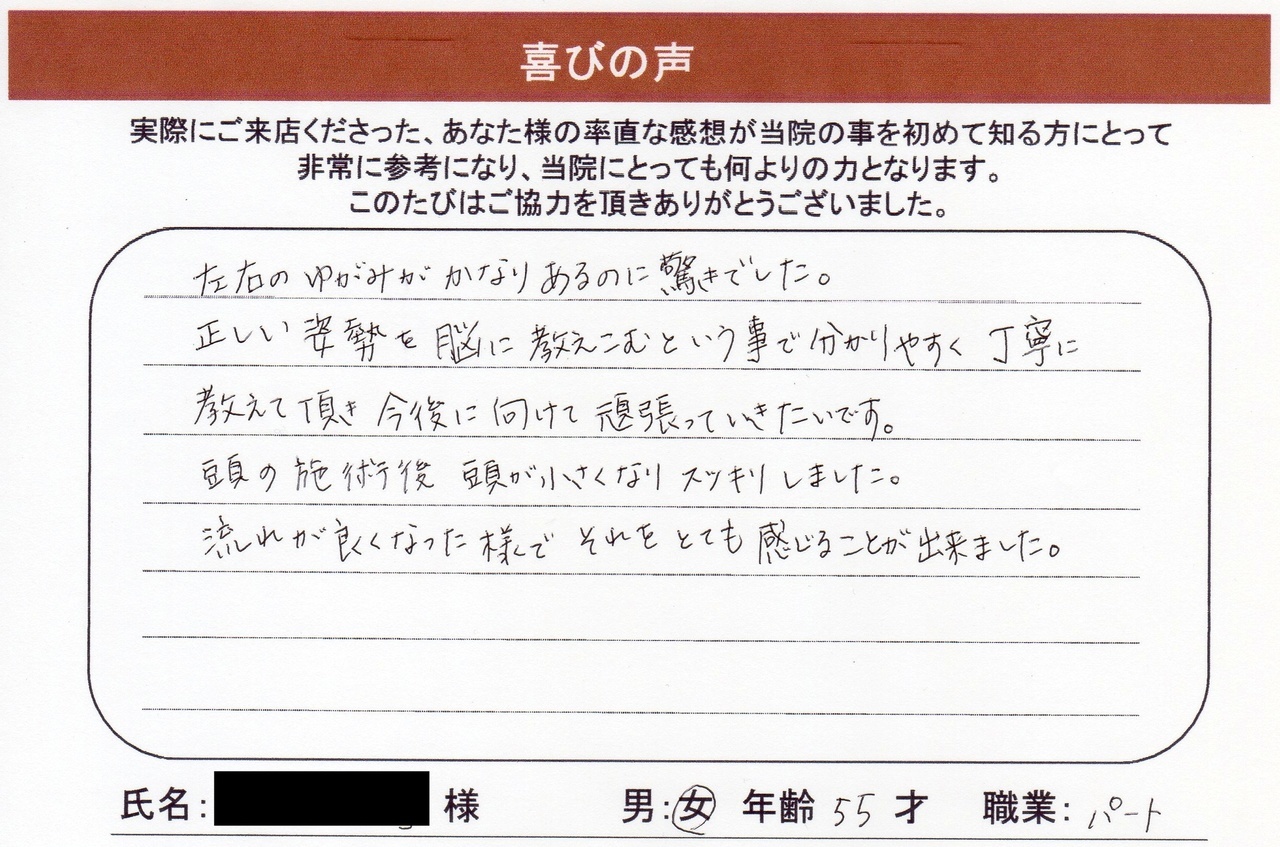 喜びの声
実際にご来店くださった、あなた様の率直な感想が当院の事を初めて知る方にとって
非常に参考になり、当院にとっても何よりの力となります。
このたびはご協力を頂きありがとうございました。
左右のゆがみがかなりあるのに驚きでした。
正しい姿勢を脳に教えこむという事で分かりやすく丁寧に
教えて頂き今後に向けて頑張っていきたいです。
頭の施術後 頭が小さくなりスッキリしました。
流れが良くなった様でそれをとても感じることが出来ました。
氏名: 様 男:女 年齢 55 才 職業: パート